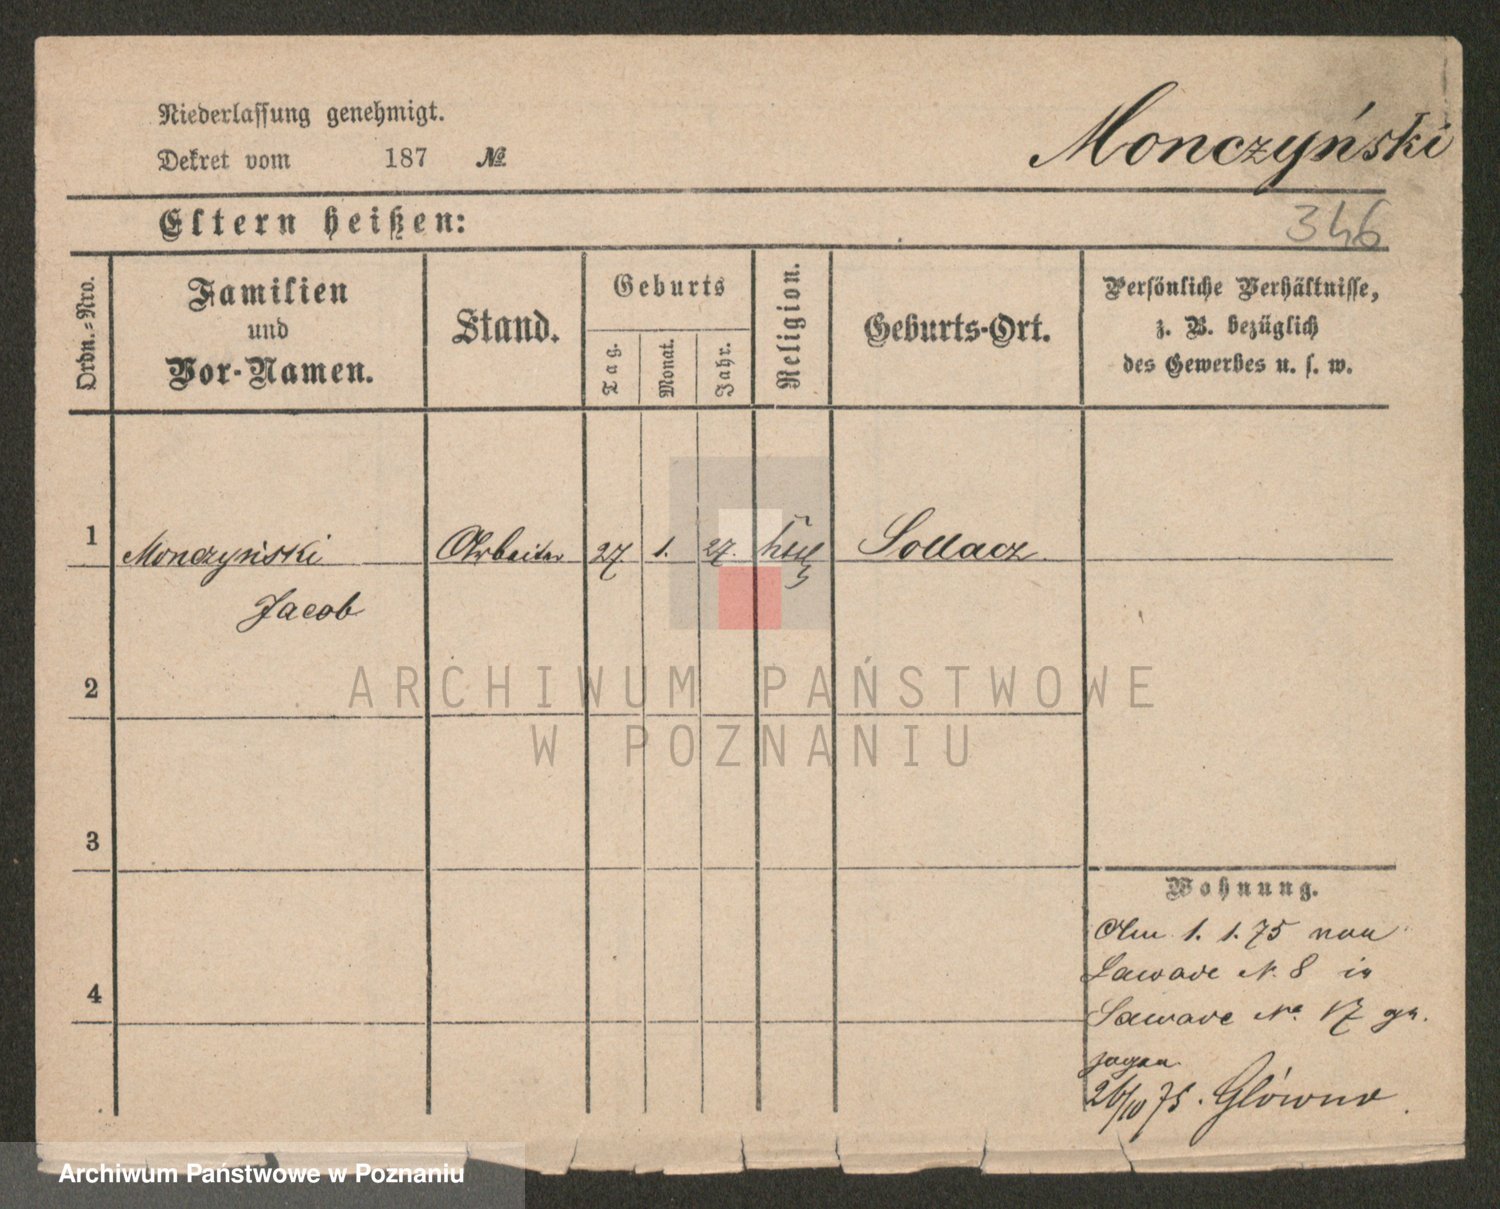 Niederlassung genehmigt.
Dekret vom 187 №
Monczyński
Eltern heißen:
346
Ordn.-Nro.
Familien
und
Vor-Namen.
Stand.
Geburts
Tag.
Monat.
Jahr.
Religion.
Geburts-Ort.
Persönliche Verhältnisse,
z. B. bezüglich
des Gewerbes u. s. w.
1 Monczyński Arbeiter 27. 1. 27. kath Sollacz
Jacob
2
3
4
ARCHIWUM PAŃSTWOWE
W POZNANIU
Wohnung.
Am 1. 1. 75 von
Zawade N. 8 in
Zawade No. 17 ge.
zogen
26/10 75. Główno
Archiwum Państwowe w Poznaniu